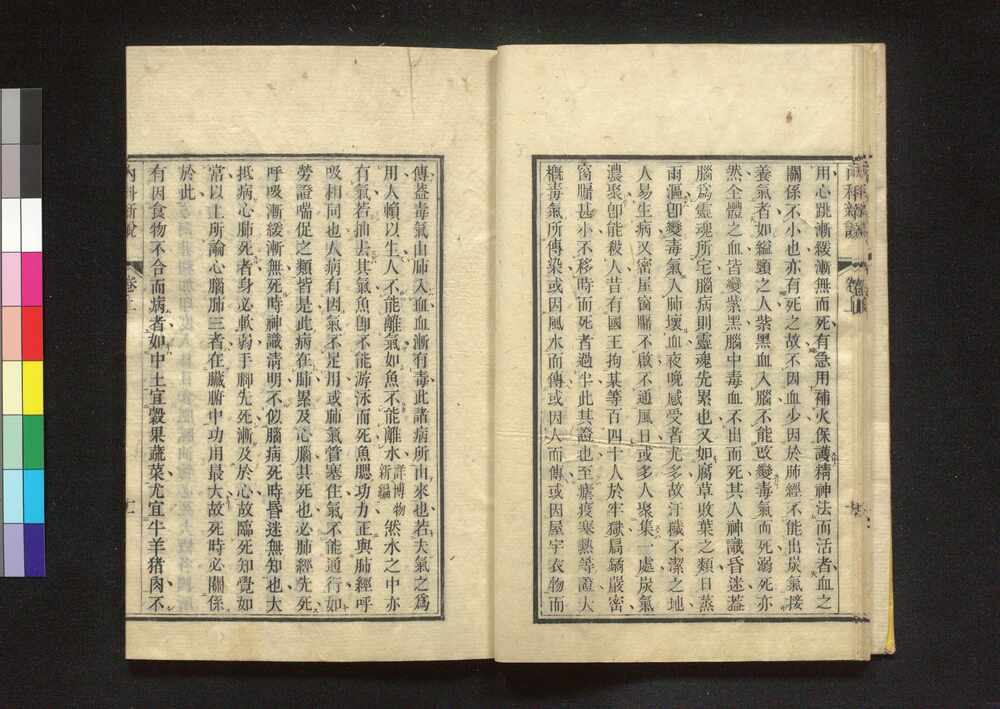 用心跳漸緩漸無而死有急用補火保護精神法而活者血之
關係不小也亦有死之故不因血少因於肺經不能出炭氣接
養氣者如縊頸之人紫黑血入腦不能改變毒氣而死溺死亦
然全體之血皆變紫黑腦中毒血不出而死其人神識昏迷蓋
腦爲靈魂所宅腦病則靈魂先累也又如腐草敗葉之類日蒸
雨漚卽變毒氣人肺壞血夜晚感受者尤多故汙穢不潔之地
人易生病又密屋窗牖不啟不通風日或多人聚集一處炭氣
濃聚卽能殺人昔有國王拘某等百四十人於牢獄扃鐍嚴密
窗牖甚小不移時而死者過半此其證也至瘧疫寒熱等證大
概毒氣所傳染或因風水而傳或因人而傳或因屋宇衣物而
傳蓋毒氣由肺入血血漸有毒此諸病所由來也若夫氣之爲
用人賴以生人不能離氣如魚不能離水詳博物新編然水之中亦
有氣若抽去其氣魚卽不能游泳而死魚腮功力正與肺經呼
吸相同也人病有因氣不足用或肺氣管塞住氣不能通行如
勞證喘促之類皆是此病在肺累及心腦其死也必肺經先死
呼吸漸緩漸無死時神識清明不似腦病死時昏迷無知也大
抵病心肺死者身必軟弱手腳先死漸及於心故臨死知覺如
常以上所論心腦肺三者在臟腑中功用最大故死時必關係
於此
有因食物不合而病者如中土宜穀果蔬菜尤宜牛羊猪肉不
內科新說
卷上